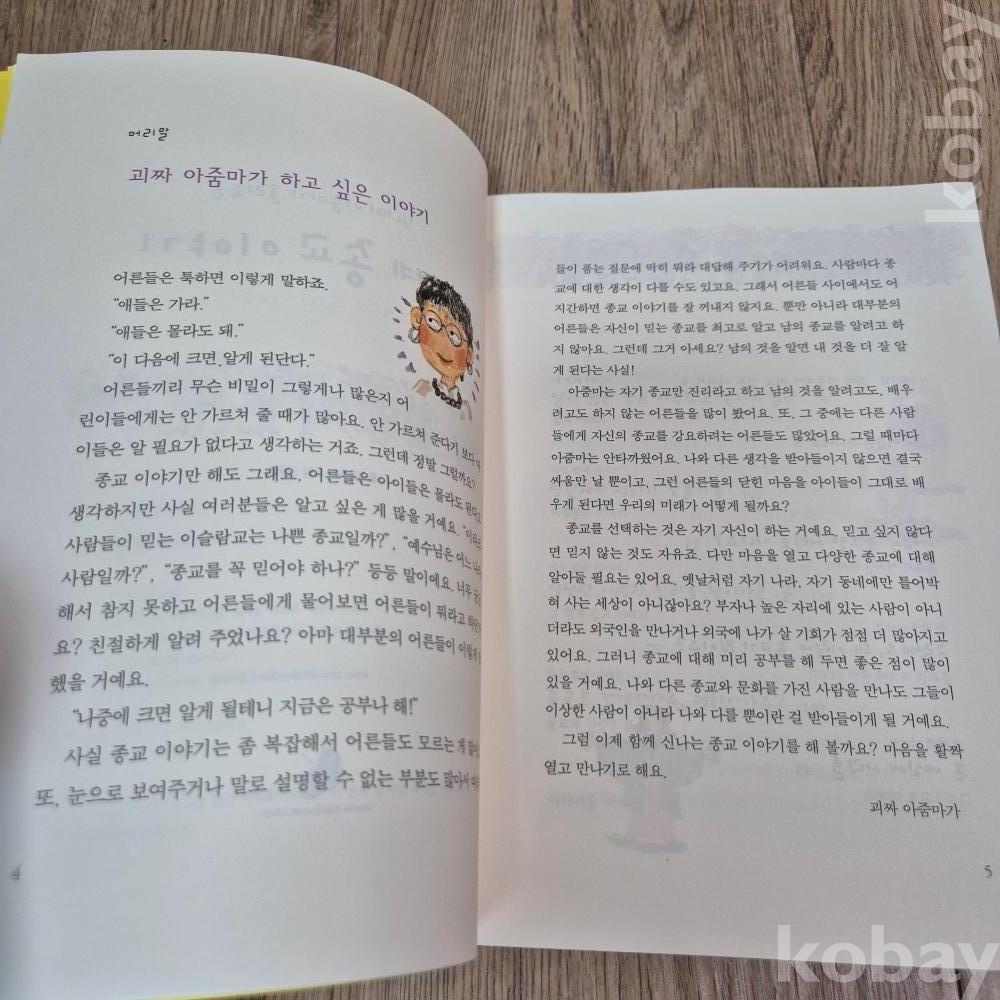 머리말
괴짜 아줌마가 하고 싶은 이야기
어른들은 툭하면 이렇게 말하죠.
"애들은 가라."
"애들은 몰라도 돼."
"이 다음에 크면 알게 된단다."
어른들끼리 무슨 비밀이 그렇게나 많은지 어
린이들에게는 안 가르쳐 줄 때가 많아요. 안 가르쳐 준다기 보다
이들은 알 필요가 없다고 생각하는 거죠. 그런데 정말 그럴까요?
종교 이야기만 해도 그래요. 어른들은 아이들은 몰라도 된다고
생각하지만 사실 여러분들은 알고 싶은 게 많을 거예요.
사람들이 믿는 이슬람교는 나쁜 종교일까?", "예수님은 어느
사람일까?", "종교를 꼭 믿어야 하나?" 등등 말이에요. 너무
해서 참지 못하고 어른들에게 물어보면 어른들이 뭐라고
요? 친절하게 알려 주었나요? 아마 대부분의 어른들이 이렇게
했을 거예요.
"나중에 크면 알게 될테니 지금은 공부나 해!"
사실 종교 이야기는 좀 복잡해서 어른들도 모르는 게
또, 눈으로 보여주거나 말로 설명할 수 없는 부분도 많아서
4
들이 품는 질문에 딱히 뭐라 대답해 주기가 어려워요. 사람마다 종
교에 대한 생각이 다를 수도 있고요. 그래서 어른들 사이에서도 어
지간하면 종교 이야기를 잘 꺼내지 않지요. 뿐만 아니라 대부분의
어른들은 자신이 믿는 종교를 최고로 알고 남의 종교를 알려고 하
지 않아요. 그런데 그거 아세요? 남의 것을 알면 내 것을 더 잘 알
게 된다는 사실!
아줌마는 자기 종교만 진리라고 하고 남의 것을 알려고도, 배우
려고도 하지 않는 어른들을 많이 봤어요. 또, 그 중에는 다른 사람
들에게 자신의 종교를 강요하려는 어른들도 많았어요. 그럴 때마다
아줌마는 안타까웠어요. 나와 다른 생각을 받아들이지 않으면 결국
싸움만 날 뿐이고, 그런 어른들의 닫힌 마음을 아이들이 그대로 배
우게 된다면 우리의 미래가 어떻게 될까요?
종교를 선택하는 것은 자기 자신이 하는 거예요. 믿고 싶지 않다
면 믿지 않는 것도 자유죠. 다만 마음을 열고 다양한 종교에 대해
알아둘 필요는 있어요. 옛날처럼 자기 나라, 자기 동네에만 틀어박
혀 사는 세상이 아니잖아요? 부자나 높은 자리에 있는 사람이 아니
더라도 외국인을 만나거나 외국에 나가 살 기회가 점점 더 많아지고
있어요. 그러니 종교에 대해 미리 공부를 해 두면 좋은 점이 많이
있을 거예요. 나와 다른 종교와 문화를 가진 사람을 만나도 그들이
이상한 사람이 아니라 나와 다를 뿐이란 걸 받아들이게 될 거예요.
그럼 이제 함께 신나는 종교 이야기를 해 볼까요? 마음을 활짝
열고 만나기로 해요.
괴짜 아줌마가
5
kobay
kobay